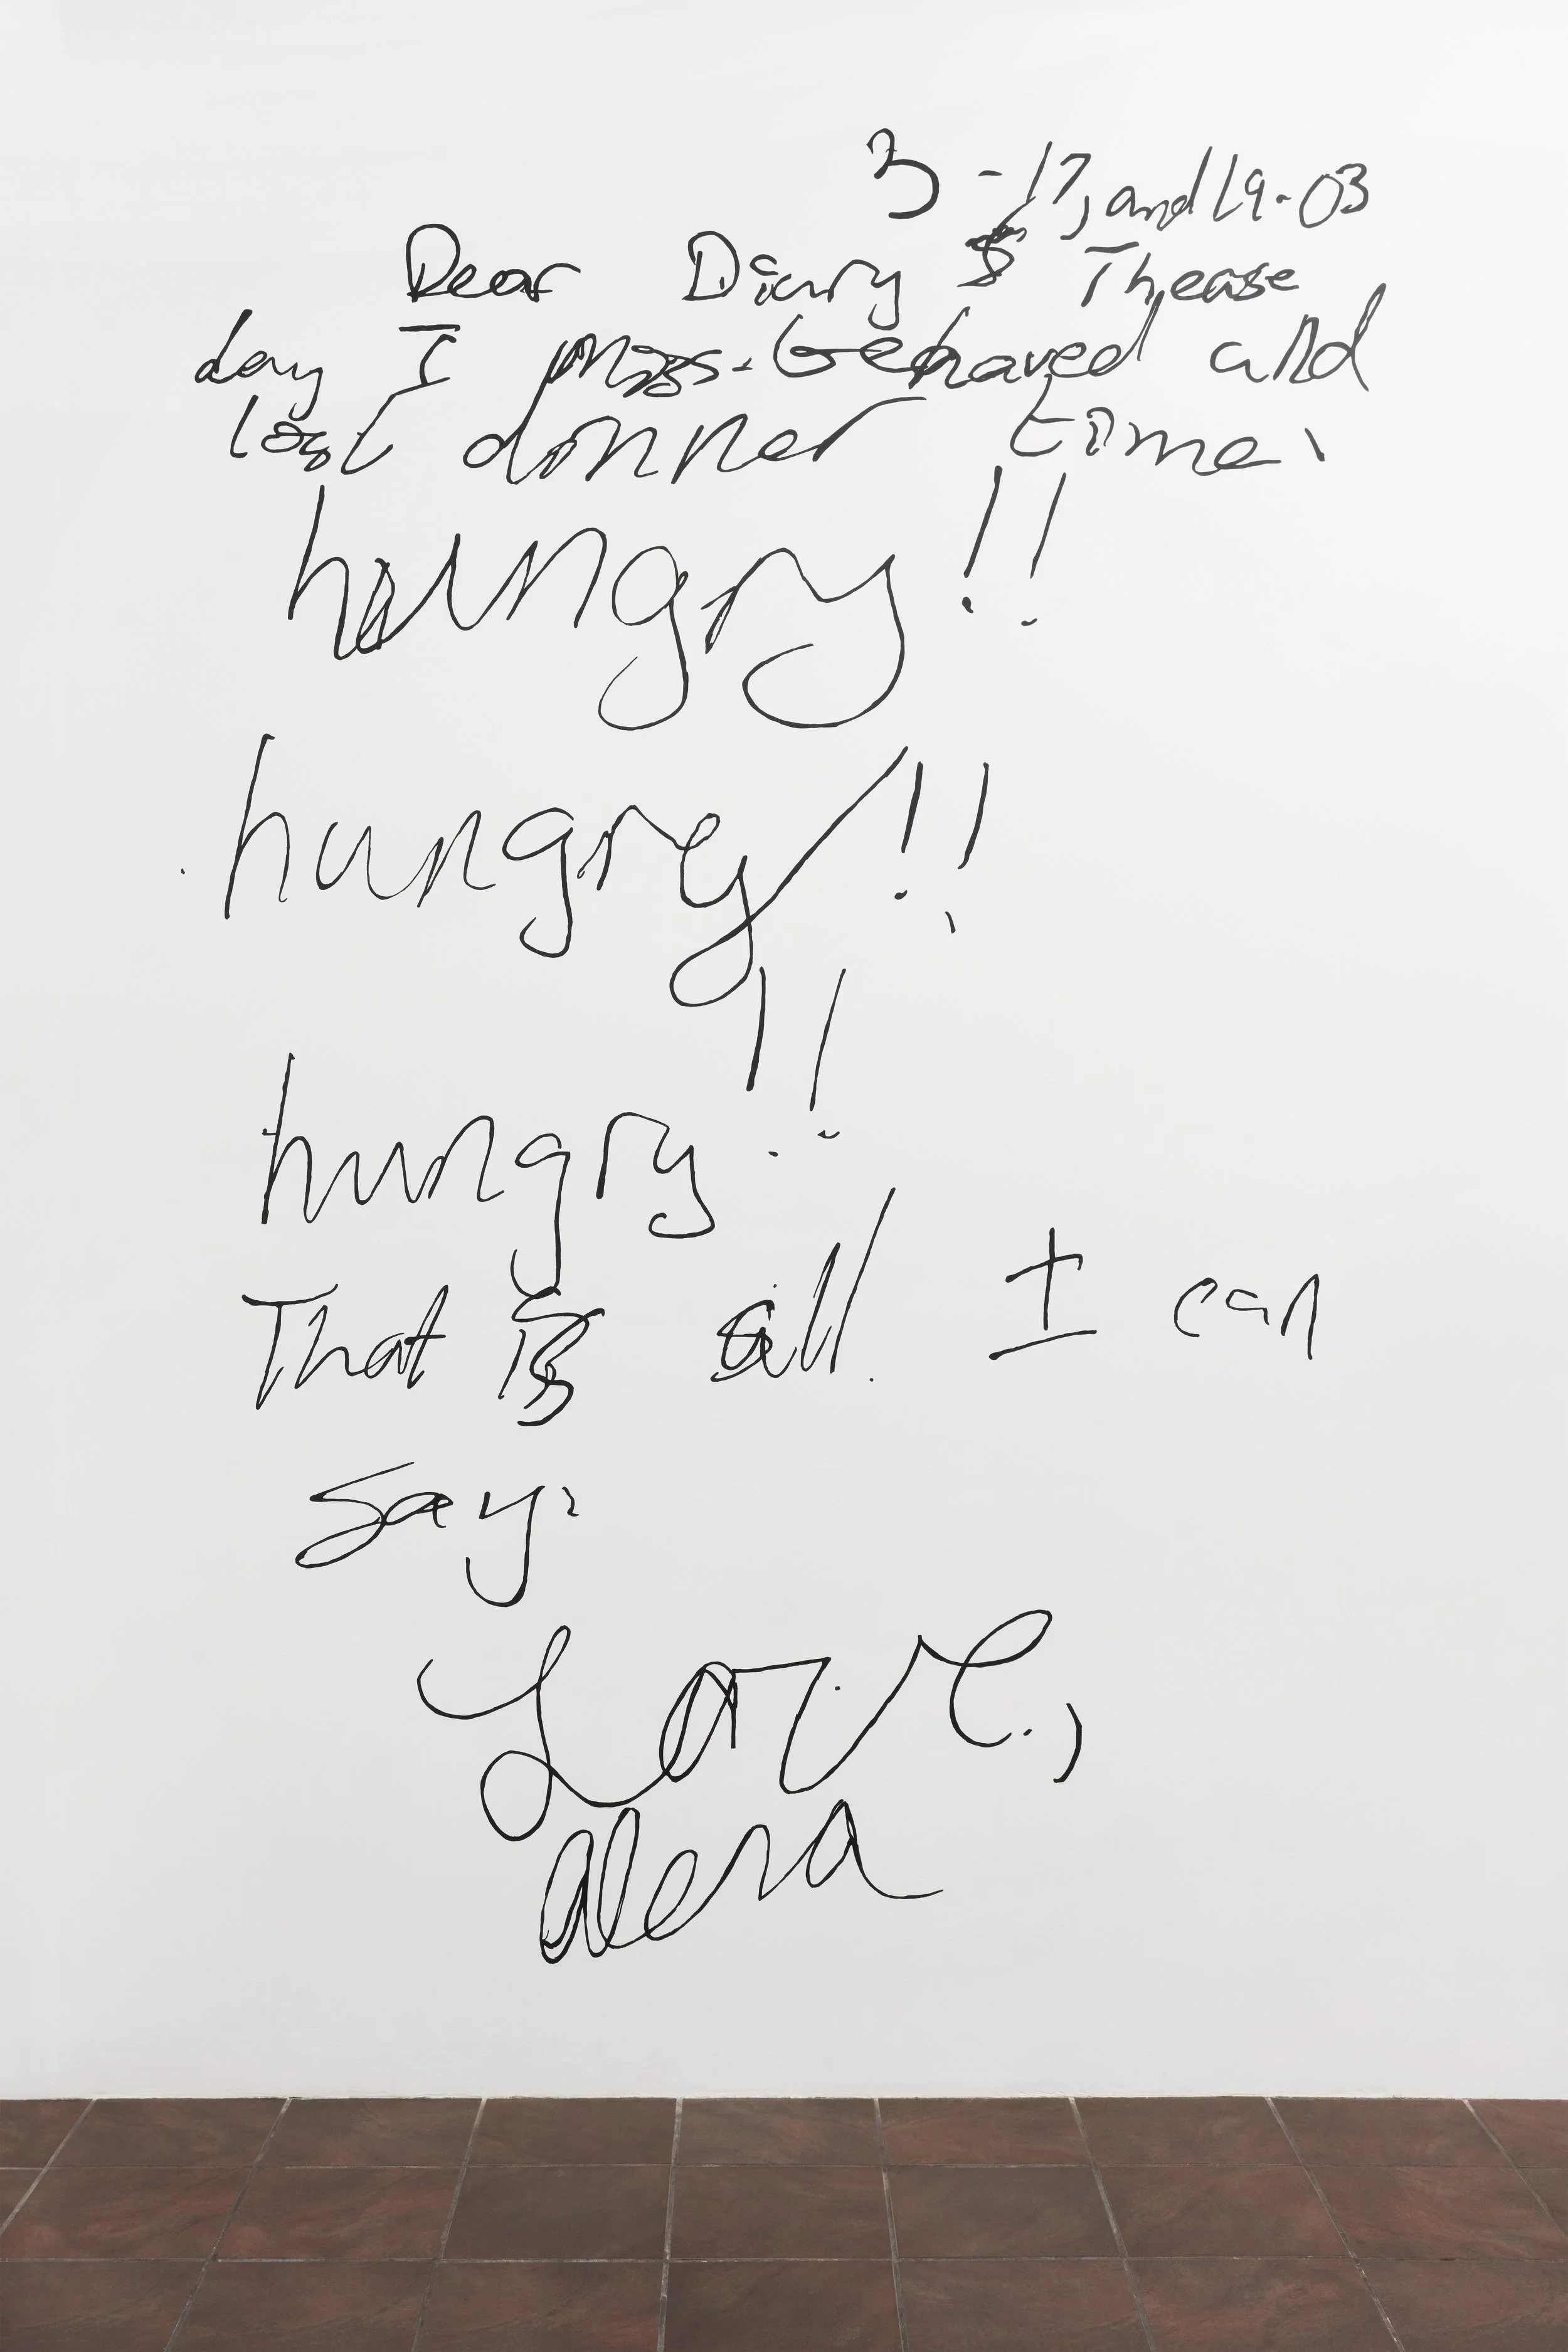 3-17, and 19-03
Dear Diary Thease
day I miss-behaved and
lost dinner time.
hungry!!
hungrey!!
hungry!!
That is all I can
say.
Love,
alena